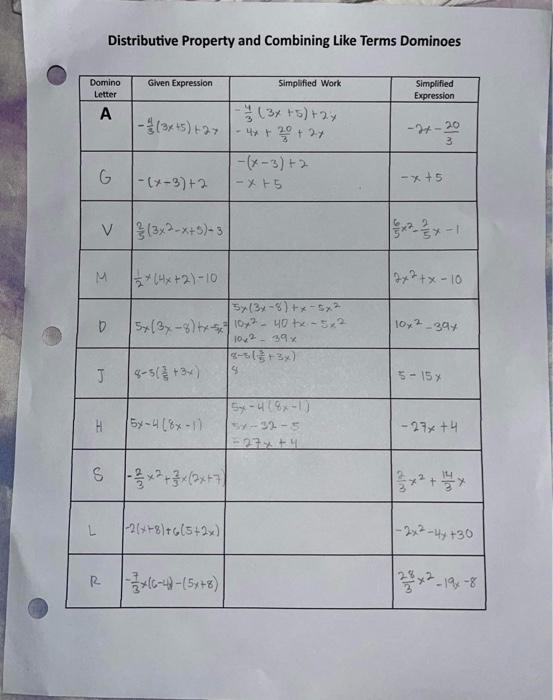 Distributive Property and Combining Like Terms Dominoes
Domino Letter Given Expression Simplified Work Simplified Expression
A -4/3(3x+5)+2x -4/3(3x+5)+2x -2x-20/3
-4x+20/3+2x
G -(x-3)+2 -(x-3)+2 -x+5
-x+5
V 2/5(3x²-x+5)-3 6/5x²-2/5x-1
M 1/2x(4x+2)-10 2x²+x-10
D 5x(3x-8)+x-5x² 5x(3x-8)+x-5x² 10x²-39x
10x²-40+x-5x²
10x²-39x
J 8-5(3/5+3x) 8-5(3/5+3x) 5-15x
8
H 5x-4(8x-1) 5x-4(8x-1) -27x+4
5x-32-5
-27x+4
S -2/3x²+2/3x(2x+7) 2/3x²+14/3x
L -2(x+8)+6(5+2x) -2x²-4x+30
R -7/3x(6-4x)-(5x+8) 28/3x²-19x-8